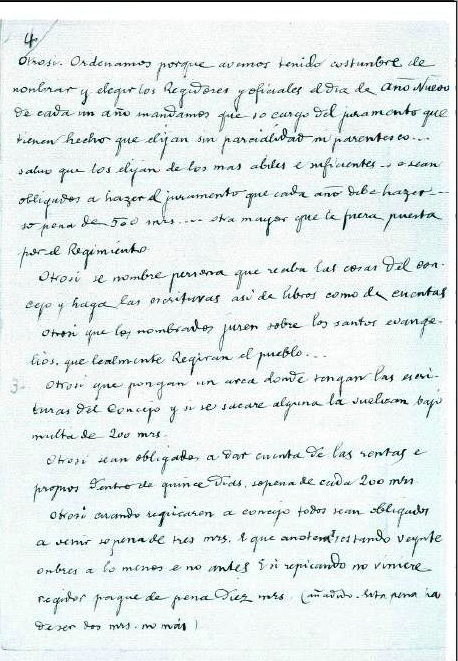 4
Otrosi. Ordenamos porque avemos tenido costunbre de
nonbrar y elegir los Regidores y oficiales el dia de Año Nuevo
de cada un año mandamos que so cargo del juramento que
tienen hecho que elijan sin parcialidad ni parentesco...
salvo que los elijan de los mas abiles e suficientes... e sean
obligados a hazer el juramento que cada año debe hazer...
so pena de 500 mrs.... otra mayor que le fuera puesta
por el Regimiento.
Otrosi se nombre persona que reciba las cosas del con-
cejo y haga las escrituras asi de libros como de cuentas
Otrosi que los nombrados juren sobre los santos evange-
lios, que lealmente Regiran el pueblo...
3- Otrosi que pongan un arca donde tengan las escri-
turas del Concejo y si se sacare alguna la vuelvan bajo
multa de 200 mrs.
Otrosi sean obligados a dar cuenta de las rentas e
propios dentro de quince dias, so pena de cada 200 mrs
Otrosi cuando repicaren a concejo todos sean obligados
a venir so pena de tres mrs. E que anoten estando veynte
onbres a lo menos e no antes E si repicando no viniere
regidor pague de pena diez mrs. (añadido. Esta pena ha
de ser dos mrs. no más)